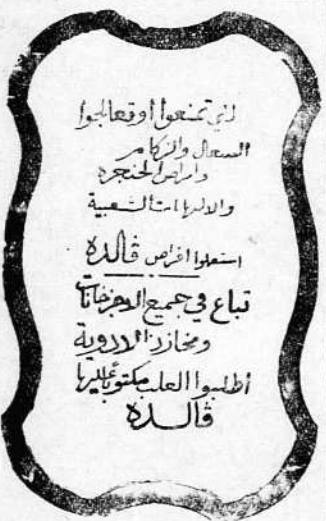 لكي تمنعوا او تعالجوا
السعال والزكام
وامراض الحنجرة
والالتهابات الشعبية
استعملوا اقراص ڤالده
تباع في جميع الاجزخانات
ومخازن الادوية
أطلبوا العلب مكتوبا عليها
ڤالده